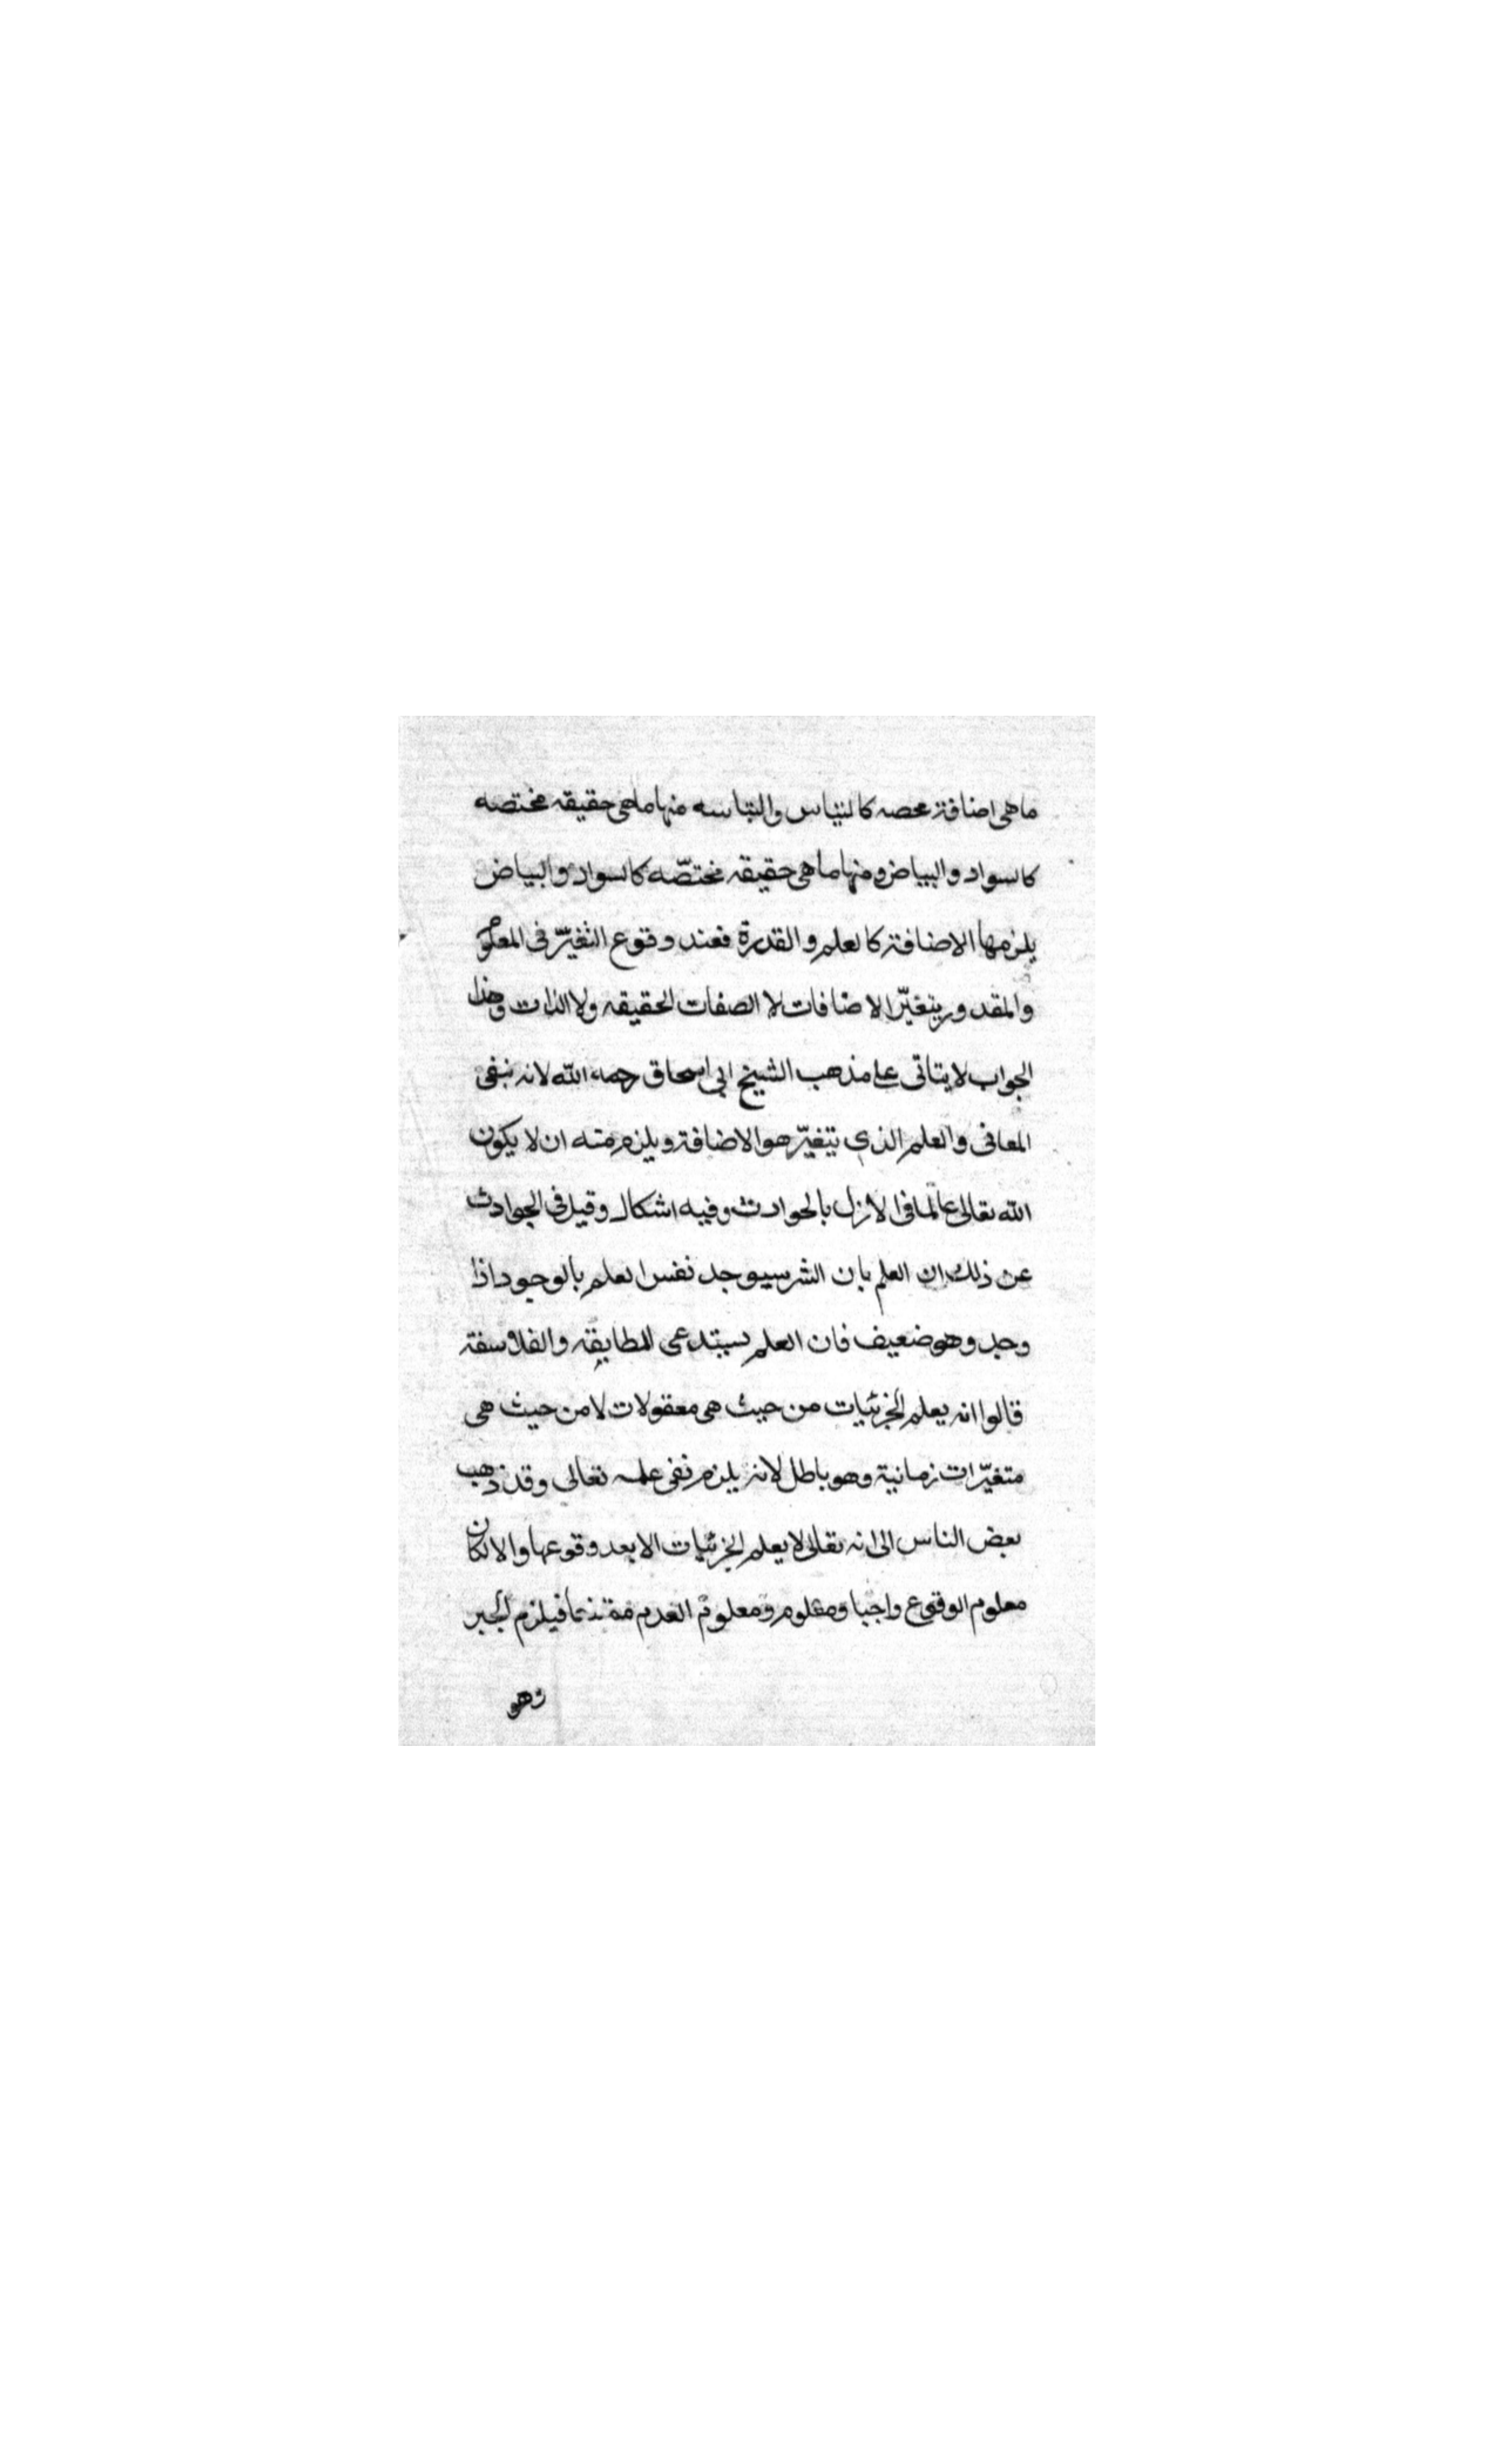 ماهى اضافة محصه كالتياس والتياسه منها ماهى حقيقه مختصه
كالسواد والبياض ومنها ما هى حقيقه مختصّه كالسواد والبياض
يلزمها الاضافة كالعلم والقدرة فعند وقوع التغيّر فى المعلوم
والمقدور يتغيّر الاضافات لا الصفات الحقيقه ولا الذات وهذا
الجواب لا يتاتى على مذهب الشيخ ابى اسحاق رحمه الله لانه ينفى
المعانى والعلم الذى يتغيّر هو الاضافة ويلزم منه ان لا يكون
الله تعالى عالما فى الازل بالحوادث وفيه اشكال وقيل فى الجوادث
عن ذلك ان العلم بان الشر سيوجد نفس العلم بالوجود اذا
وجد وهو ضعيف فان العلم يستدعى المطابقه والفلاسفة
قالوا انه يعلم الجزئيات من حيث هى معقولات لا من حيث هى
متغيّرات زمانية وهو باطل لانه يلزم نفى علمه تعالى وقد ذهب
بعض الناس الى انه تعالى لا يعلم الجزئيات الا بعد وقوعها والا لكان
معلوم الوقوع واجبا ومعلوم ومعلوم العدم فيلزم الجبر
وهو